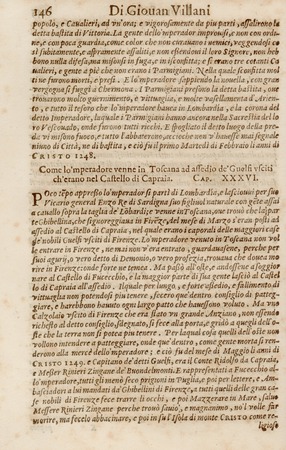 146 Di Giovan Villani
popolo, e Cavalieri, ad un'ora; e vigorosamente da piu parti, assalirono la
detta bastita di Vittoria. La gente dello'mperador improvisi, e non con ordi-
ne, e con poca guardia, come color che non curavano i nemici, veggendosi co
si subitamente, e aspramente assaliti, e non essendovi il loro Signore, non heb
bono nulla difesa, ma misonsi in fuga, e in isconfitta; e si erano tre cotanti Ca
valieri, e gente a piè che non erano i Parmigiani. Nella quale sconfitta mol
ti ne furono morti, e presi. E lo'mperadore sappiendo la novella, con gran
vergogna si fuggì a Chermona. I Parmigiani presero la detta bastita, ove
trovarono molto guernimento, e vittuaglia, e molte vasellamenta d'arien-
to, e tutto il tesoro che lo'mperadore havea in Lombardia, e la corona del
detto Imperadore, laquale i Parmigiani hanno ancora nella Sacrestia del lo
ro Vescovado, onde furono tutti ricchi. E spogliato il detto luogo della pre
da vi misono fuoco, e tutto l'abbatterono, accioche non v'havesse mai segnale
ninno di Città, ne di bastita, e ciò fu il primo Martedì di Febraio alli anni di
CRISTO 1248.
Come lo'mperadore venne in Toscana ad assedio de' Guelfi usciti
ch'erano nel Castello di Capraia. CAP. XXXVI.
POco tempo appresso lo'mperador si partì di Lombardia, e lasciovvi per suo
Vicario general Enzo Re di Sardigna suo figliuol naturale con gente assai
a cavallo sopra la taglia de' Lõbardi, e venne in Toscana, ove trovò che la par
te Ghibellina, che signoreggiava in Firenze, del mese di Marzo s'era posti ad
assedio al Castello di Capraia, nel quale erano i caporali delle maggiori case
de' nobili Guelfi usciti di Firenze. Lo'mperadore venuto in Toscana non vol
le entrare in Firenze, ne mai non v'era entrato, guardavasene, perche per
suoi aguri, o vero detto di Demonio, o vero profezia, trovava che dovea mo
rire in Firenze: onde forte ne temea. Ma passò all'oste, e andossene a soggior
nare al Castello di Fucecchio, e la maggior parte di sua gente lasciò al Castel
lo di Capraia all'assedio. Ilquale per lungo, e forte assedio, e fallimento di
vittuaglia non potendosi piu tenere, fecero que' dentro consiglio di patteg-
giare, e harebbono havuto ogni largo patto che havessono voluto. Ma uno
Calzolaio uscito di Firenze che era stato un grande Anziano, non essendo
richesto al detto consiglio, sdegnato, si fece alla porta, e gridò a quegli dell'o-
ste che la terra non si potea piu tenere. Per laqual cosa quelli dell'oste non
vollono intendere a patteggiare, onde que' dentro, come gente morta si ren-
derono alla mercè dello'mperadore; e ciò fu del mese di Maggio li anni di
CRISTO 1249. e Capitano de' detti Guelfi, era il Conte Ridolfo di Capraia,
e Messer Rinieri Zingane de' Buondelmonti. E rappresentati a Fucecchio al-
lo'mperadore, tutti gli menò seco prigioni in Puglia, e poi per lettere, e Am-
basciadori a lui mandati da' Ghibellini di Firenze, a tutti quelli delle gran ca-
se nobili di Firenze fece trarre li occhi, e poi Mazzerare in Mare, salvo
Messere Rinieri Zingane perche trovò savio, e magnanimo, nol volle far
morire, ma fecelo abbacinare, e poi in su l'Isola di monte CRISTO come re-
ligioso